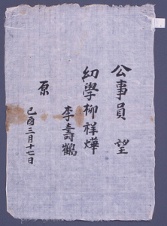 公事員 望
幼學柳祥燁
李壽鶴
原
己酉三月十七日